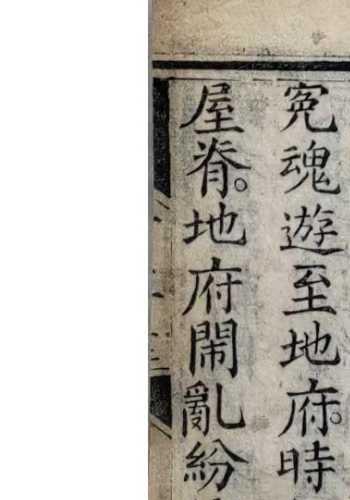 冤魂遊至地府。時
屋脊。地府鬧亂紛